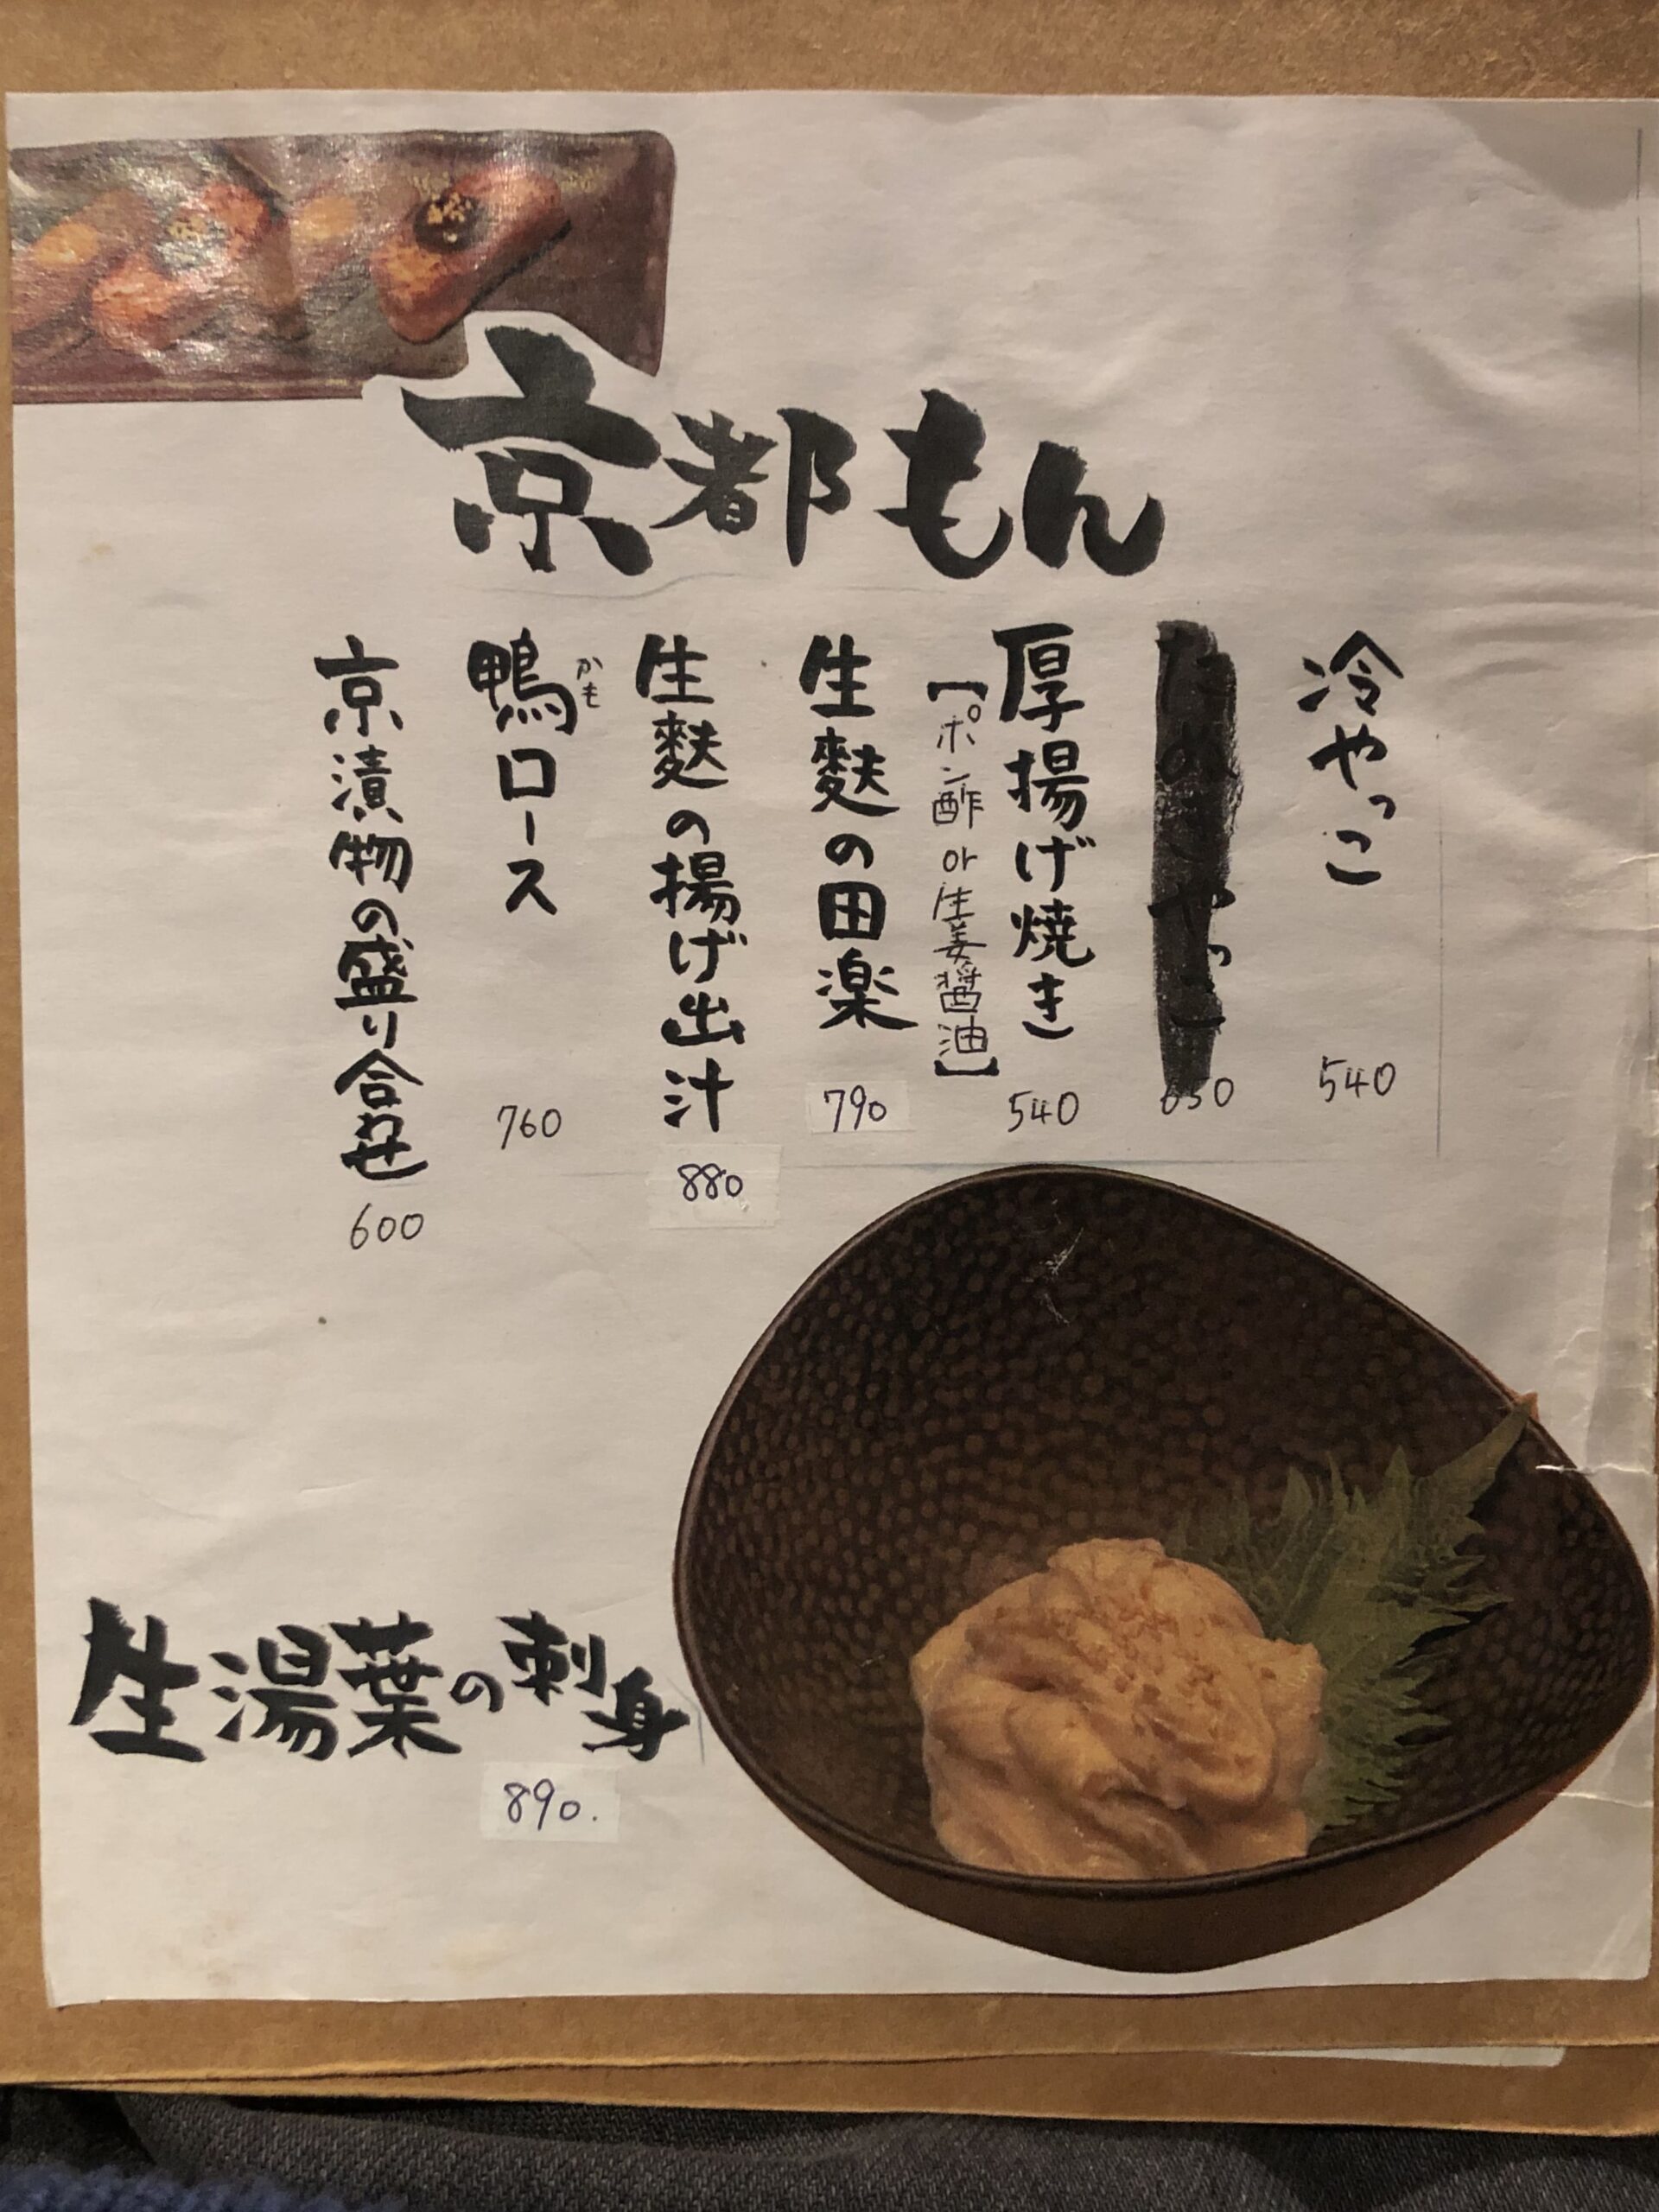 京都もん
冷やっこ
540
たぬきやっこ
650
厚揚げ焼き
540
【ポン酢or生姜醤油】
生麩の田楽
790
生麩の揚げ出汁
880
鴨ロース
かも
760
京漬物の盛り合わせ
600
生湯葉の刺身
890.